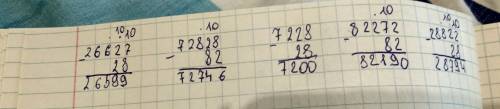 .1010
- 26627
28
26599
.10
- 72828
82
72746
- 7228
28
7200
.10
- 82272
82
82190
.1010
- 28822
28
28794